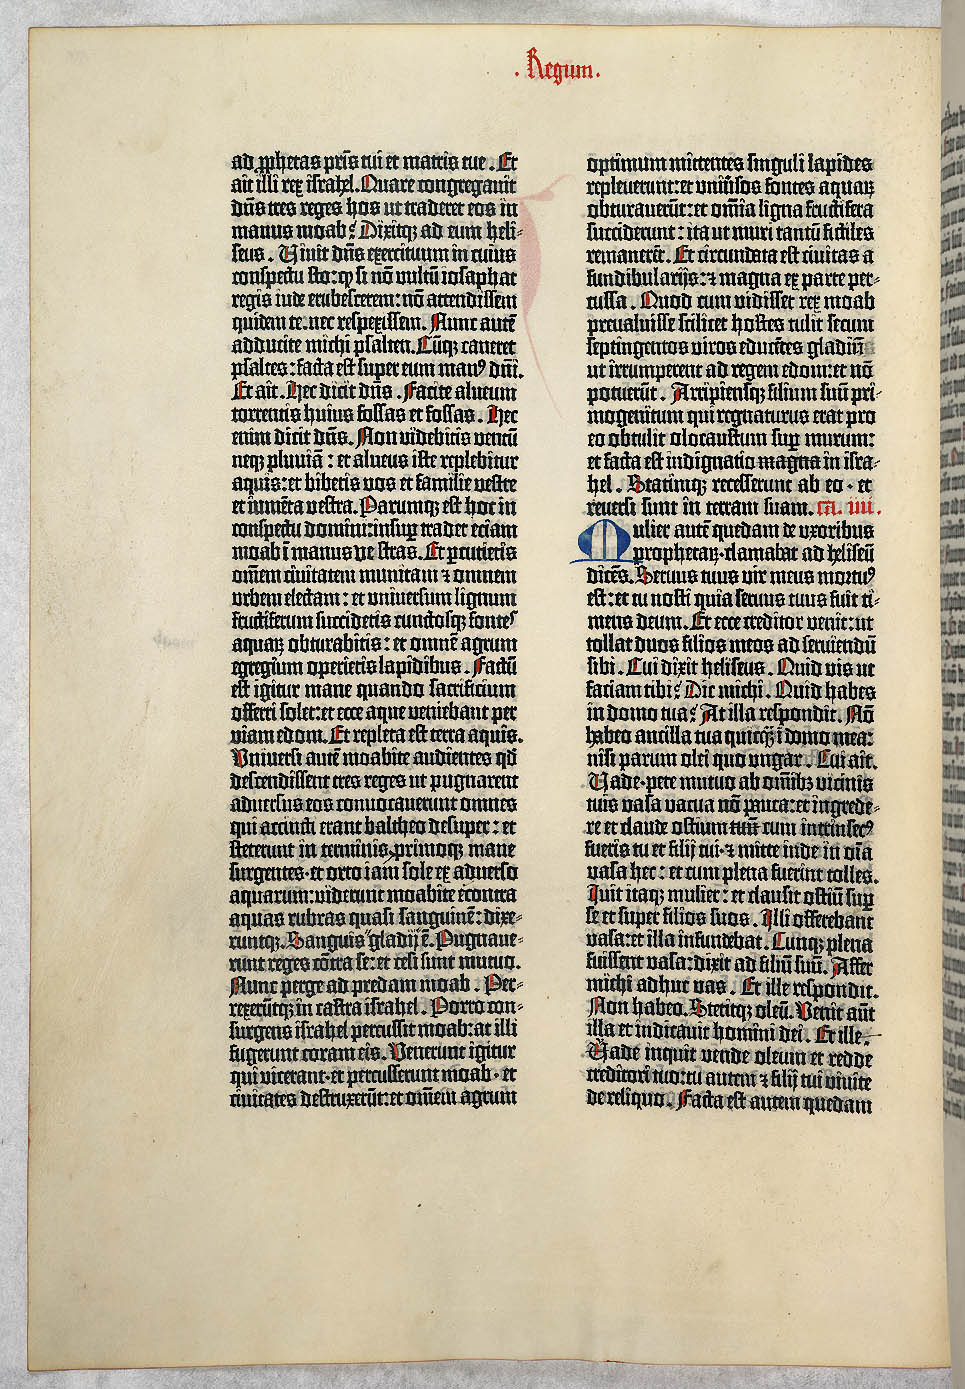 . Regum .
ad ꝓphetas pr̄is tui et matris tue . Et
ait illi rex israhel . Quare congregauit
dn̄s tres reges hos ut traderet eos in
manus moab? Dixitqꝫ ad eum heli-
seus . Viuit dn̄s exercituum in cuius
conspectu sto: ꝙ si nō vultū iosaphat
regis iude erubescerem: nō attendissem
quidem te . nec respexissem . Nunc autē
adducite michi psalten . Cūqꝫ caneret
psaltes: facta est super eum manꝰ dn̄i .
Et ait . Hec dicit dn̄s . Facite alueum
torrentis huius fossas et fossas . Hec
enim dicit dn̄s . Non videbitis ventū
neqꝫ pluuiā: et alueus iste replebitur
aquis: et bibetis vos et familie vestre
et iumēta vestra . Parumqꝫ est hoc in
conspectu domini: insuꝑ tradet eciam
moab ī manus vestras . Et ꝑcutietis
om̄em ciuitatem munitam ⁊ omnem
vrbem electam: et vniuersum lignum
fructiferum succidetis cunctosqꝫ fontes
aquaꝝ obturabitis: et omnē agrum
egregium operietis lapidibus . Factū
est igitur mane quando sacrificium
offerri solet: et ecce aque veniebant per
viam edom . Et repleta est terra aquis .
Vniuersi autē moabite audientes qd̄
descendissent tres reges ut pugnarent
aduersus eos conuocauerunt omnes
qui accincti erant baltheo desuper: et
steterunt in terminis . primoqꝫ mane
surgentes . et orto iam sole ex aduerso
aquarum: viderunt moabite econtra
aquas rubras quasi sanguinē: dixe-
runtqꝫ . Sanguis gladij ē . Pugnaue-
runt reges cōtra se: et cesi sunt mutuo .
Nunc perge ad predam moab . Per-
rexerūtqꝫ in castra israhel . Porro con-
surgens israhel percussit moab: at illi
fugerunt coram eis . Venerunt igitur
qui vicerant . et percusserunt moab . et
ciuitates destruxerūt: et om̄em agrum
optimum mittentes singuli lapides
repleuerunt: et vniu̇sos fontes aquaꝝ
obturauerūt: et om̄ia ligna fructifera
succiderunt: ita ut muri tantū fictiles
remanerēt . Et circumdata est ciuitas a
fundibularijs: ⁊ magna ex parte per-
cussa . Quod cum vidisset rex moab
preualuisse scilicet hostes tulit secum
septingentos viros educētes gladiū
ut irrumperent ad regem edom: et nō
potuerūt . Arripiensqꝫ filium suū pri-
mogenitum qui regnaturus erat pro
eo obtulit olocaustum suꝑ murum:
et facta est indignatio magna in isra-
hel . Statimqꝫ recesserunt ab eo . et
reuersi sunt in terram suam . c̄a. iiii .
Mulier autē quedam de vxoribus
prophetaꝝ . clamabat ad heliseū
dicēs . Seruus tuus vir meus mortuꝰ
est: et tu nosti quia seruus tuus fuit ti-
mens deum . Et ecce creditor venit: ut
tollat duos filios meos ad seruiendū
sibi . Cui dixit heliseus . Quid vis ut
faciam tibi? Dic michi . Quid habes
in domo tua? At illa respondit . Nō
habeo ancilla tua quicqꝫ ī domo mea:
nisi parum olei quo vngar . Cui ait .
Vade . pete mutuo ab om̄ibꝫ vicinis
tuis vasa vacua nō pauca: et ingrede-
re et claude ostium tuū cum intrinsecꝰ
fueris tu et filij tui . ⁊ mitte inde in oīa
vasa hec: et cum plena fuerint tolles .
Iuit itaqꝫ mulier: et clausit ostiū suꝑ
se et super filios suos . Illi offerebant
vasa: et illa infundebat . Cunqꝫ plena
fuissent vasa: dixit ad filiū suū . Affer
michi adhuc vas . Et ille respondit .
Non habeo . Stetitqꝫ oleū . Venit aūt
illa et indicauit homini dei . Et ille .
Vade inquit vende oleum et redde
creditori tuo: tu autem ⁊ filij tui viuite
de reliquo . Facta est autem quedam